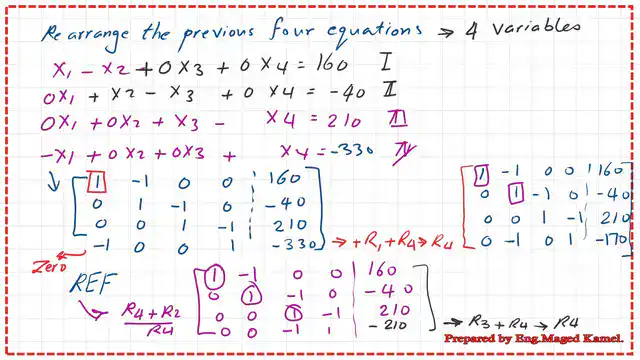 Rearrange the previous four equations → 4 variables
X1 - X2 + 0X3 + 0X4 = 160 I
0X1 + X2 - X3 + 0X4 = -40 II
0X1 + 0X2 + X3 - X4 = 210 III
-X1 + 0X2 + 0X3 + X4 = -330 IV
1 -1 0 0 160
0 1 -1 0 -40
0 0 1 -1 210
-1 0 0 1 -330 → +R1+R4→R4
Zero
1 -1 0 0 160
0 1 -1 0 -40
0 0 1 -1 210
0 -1 0 1 -170
REF
R4+R2
R4
1 -1 0 0 160
0 1 -1 0 -40
0 0 1 -1 210
0 0 -1 1 -210 → R3+R4→R4
Prepared by Eng.Maged Kamel.